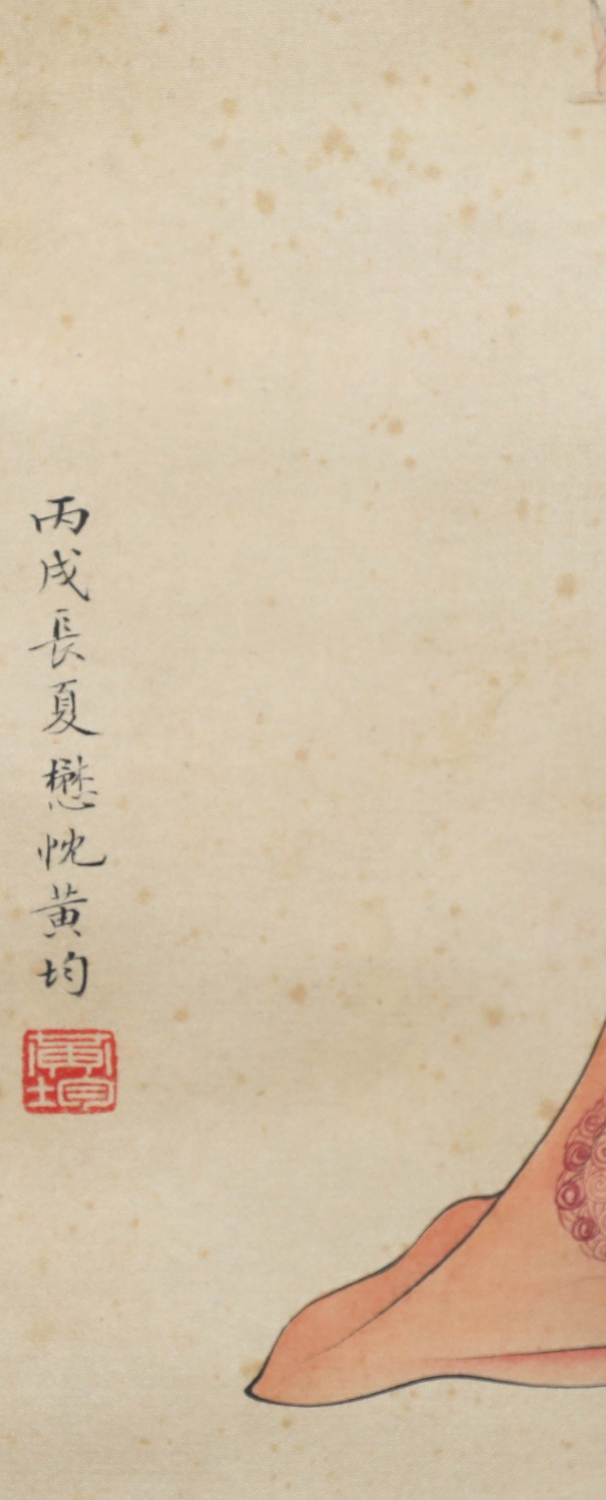 丙戌長夏懋忱黃均
黃均